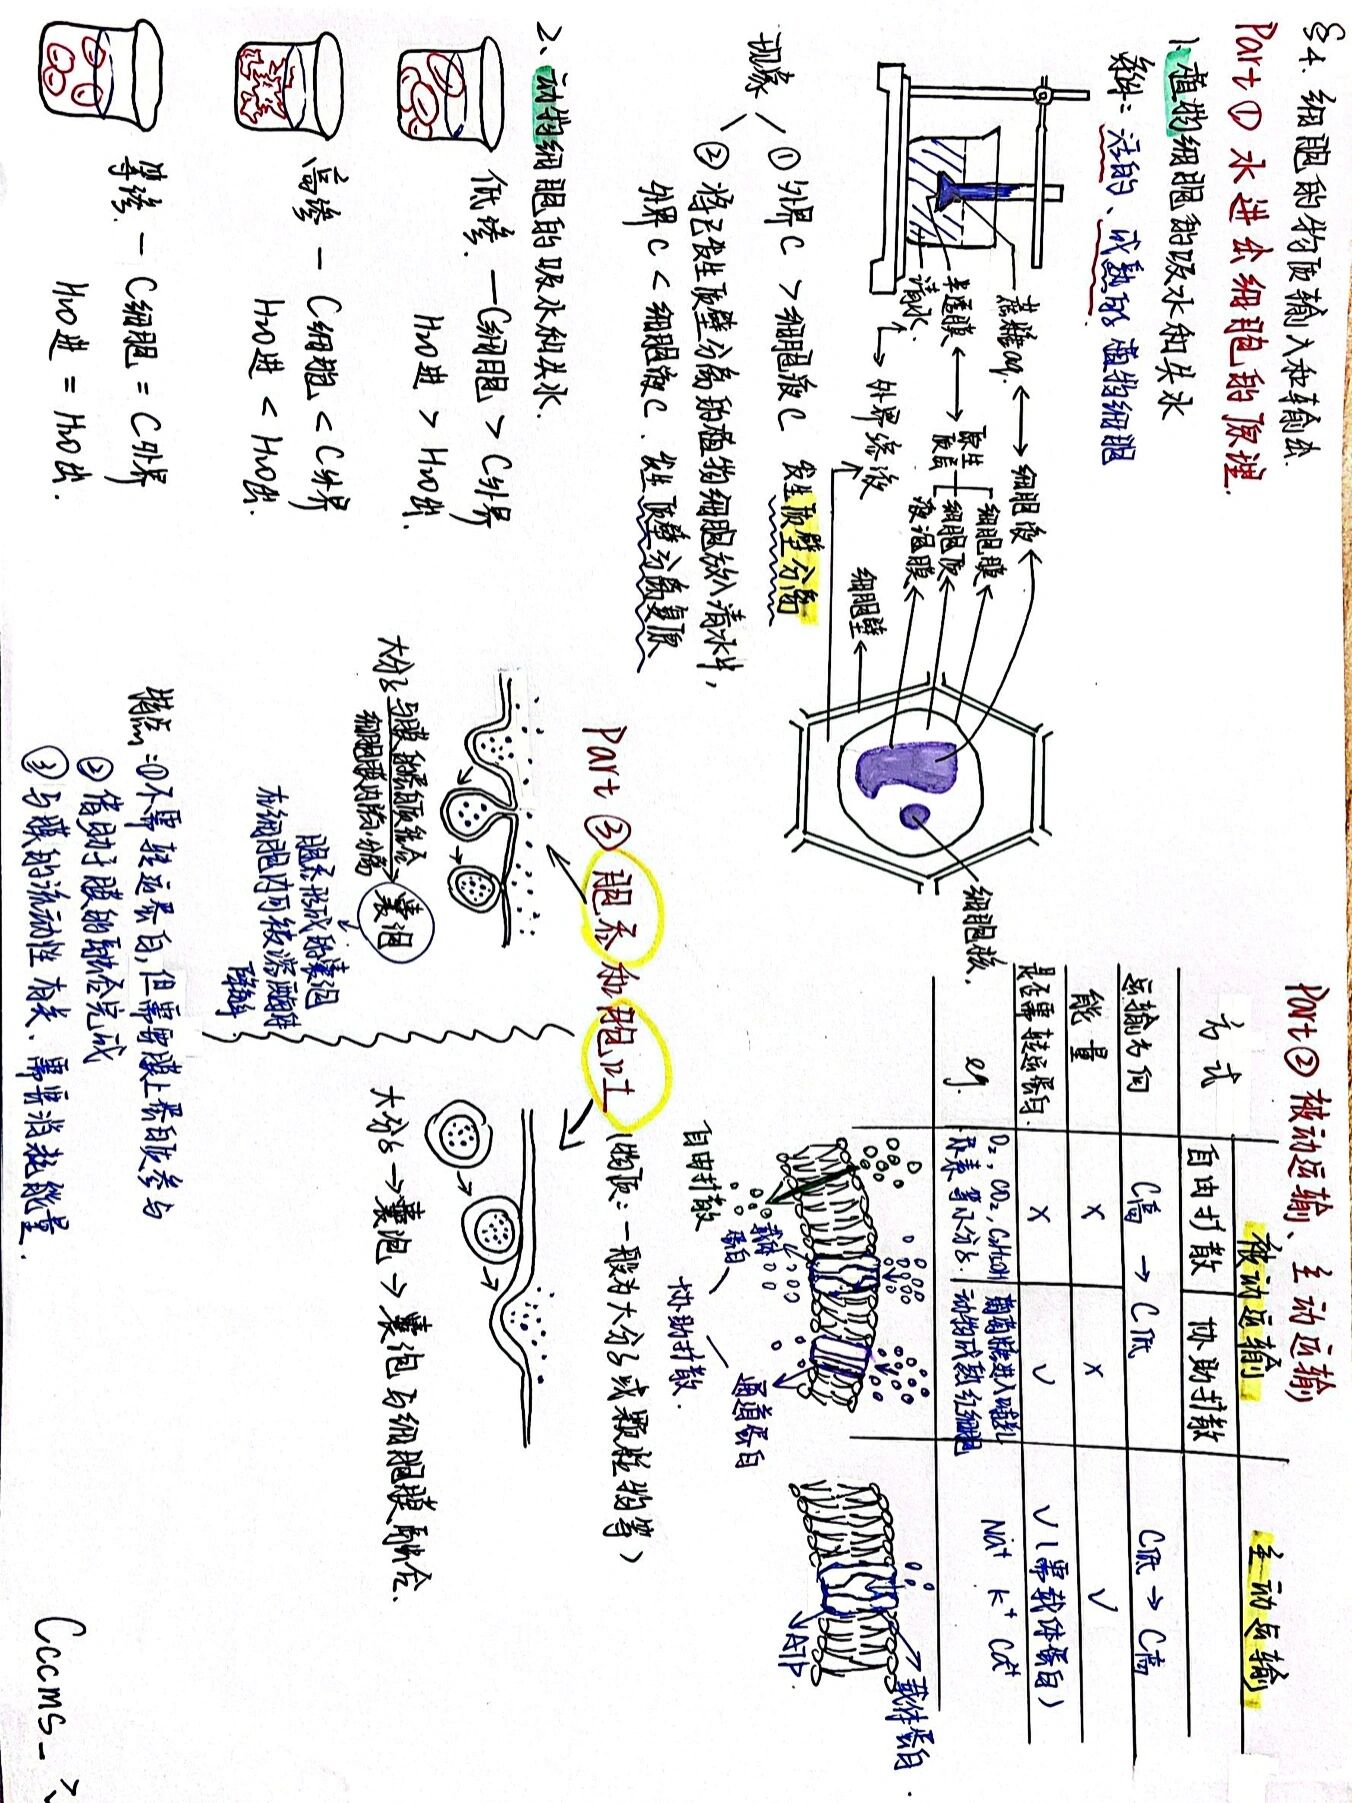 §4. 细胞的物质输入和输出.
Part ① 水进出细胞的原理.
1. 植物细胞的吸水和失水
条件: 活的、成熟的植物细胞
蔗糖aq. ↔ 细胞液
半透膜 ↔ 原生质层
细胞膜
细胞质
液泡膜
清水. ↔ 外界溶液
细胞壁
细胞核.
现象
① 外界C > 细胞液C 发生质壁分离
② 将已发生质壁分离的植物细胞放入清水中,
外界C < 细胞液C. 发生质壁分离复原
2、动物细胞的吸水和失水.
低渗. — C细胞 > C外界
H₂O进 > H₂O出.
高渗 — C细胞 < C外界
H₂O进 < H₂O出.
等渗. — C细胞 = C外界
H₂O进 = H₂O出.
Part ② 被动运输、主动运输
方式 被动运输 主动运输
自由扩散 协助扩散
运输方向 C高 → C低 C低 → C高
能量 × × √
是否需转运蛋白. × √ √ (需载体蛋白)
eg. O₂, CO₂, C₂H₅OH 尿素等小分子. 葡萄糖进入哺乳动物成熟红细胞 Na⁺ K⁺ Ca²⁺
自由扩散
载体蛋白
协助扩散.
通道蛋白
ATP
载体蛋白.
Part ③ 胞吞和胞吐 (物质: 一般为大分子或颗粒物等)
大分子 与膜的蛋白质结合 细胞膜内陷、分离 囊泡
胞吞形成的囊泡
在细胞内可被溶酶体
降解.
大分子 → 囊泡 → 囊泡与细胞膜融合.
特点: ①不需转运蛋白, 但需要膜上蛋白质参与
② 借助于膜的融合完成
③ 与膜的流动性有关、需要消耗能量.
Cccms_